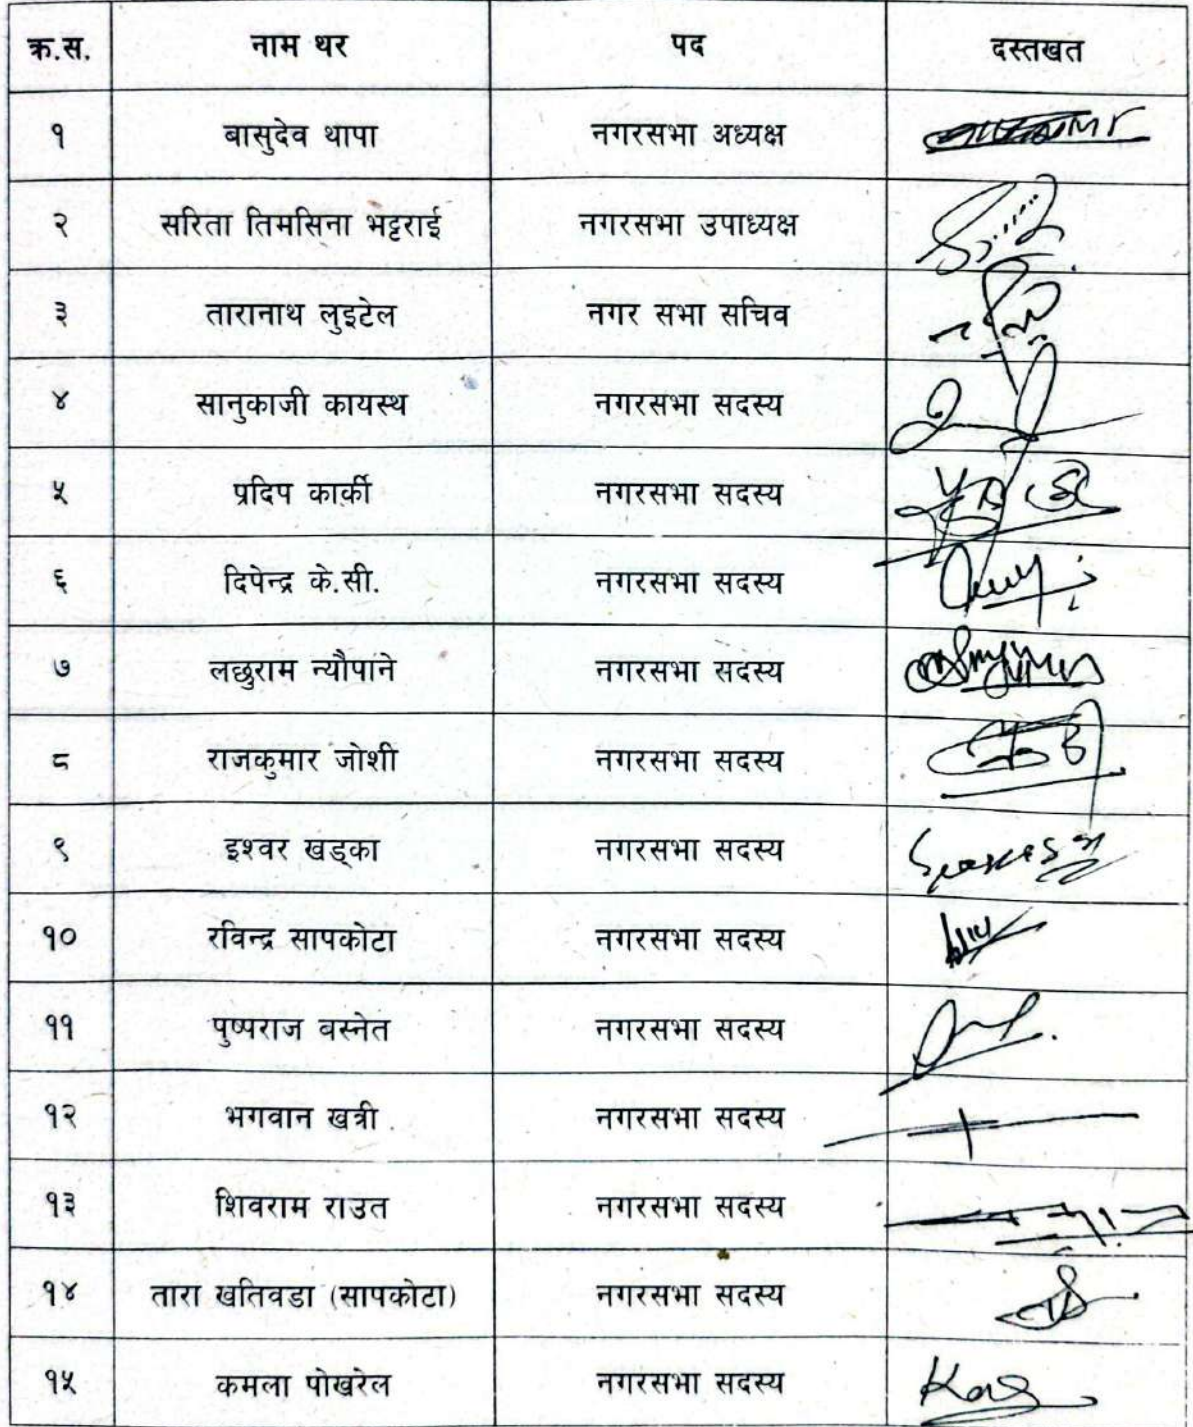 क्र.स. नाम थर पद दस्तखत
१ बासुदेव थापा नगरसभा अध्यक्ष
२ सरिता तिमसिना भट्टराई नगरसभा उपाध्यक्ष
३ तारानाथ लुइटेल नगर सभा सचिव
४ सानुकाजी कायस्थ नगरसभा सदस्य
५ प्रदिप कार्की नगरसभा सदस्य
६ दिपेन्द्र के.सी. नगरसभा सदस्य
७ लछुराम न्यौपाने नगरसभा सदस्य
८ राजकुमार जोशी नगरसभा सदस्य
९ इश्वर खड्का नगरसभा सदस्य
१० रविन्द्र सापकोटा नगरसभा सदस्य
११ पुष्पराज बस्नेत नगरसभा सदस्य
१२ भगवान खत्री नगरसभा सदस्य
१३ शिवराम राउत नगरसभा सदस्य
१४ तारा खतिवडा (सापकोटा) नगरसभा सदस्य
१५ कमला पोखरेल नगरसभा सदस्य